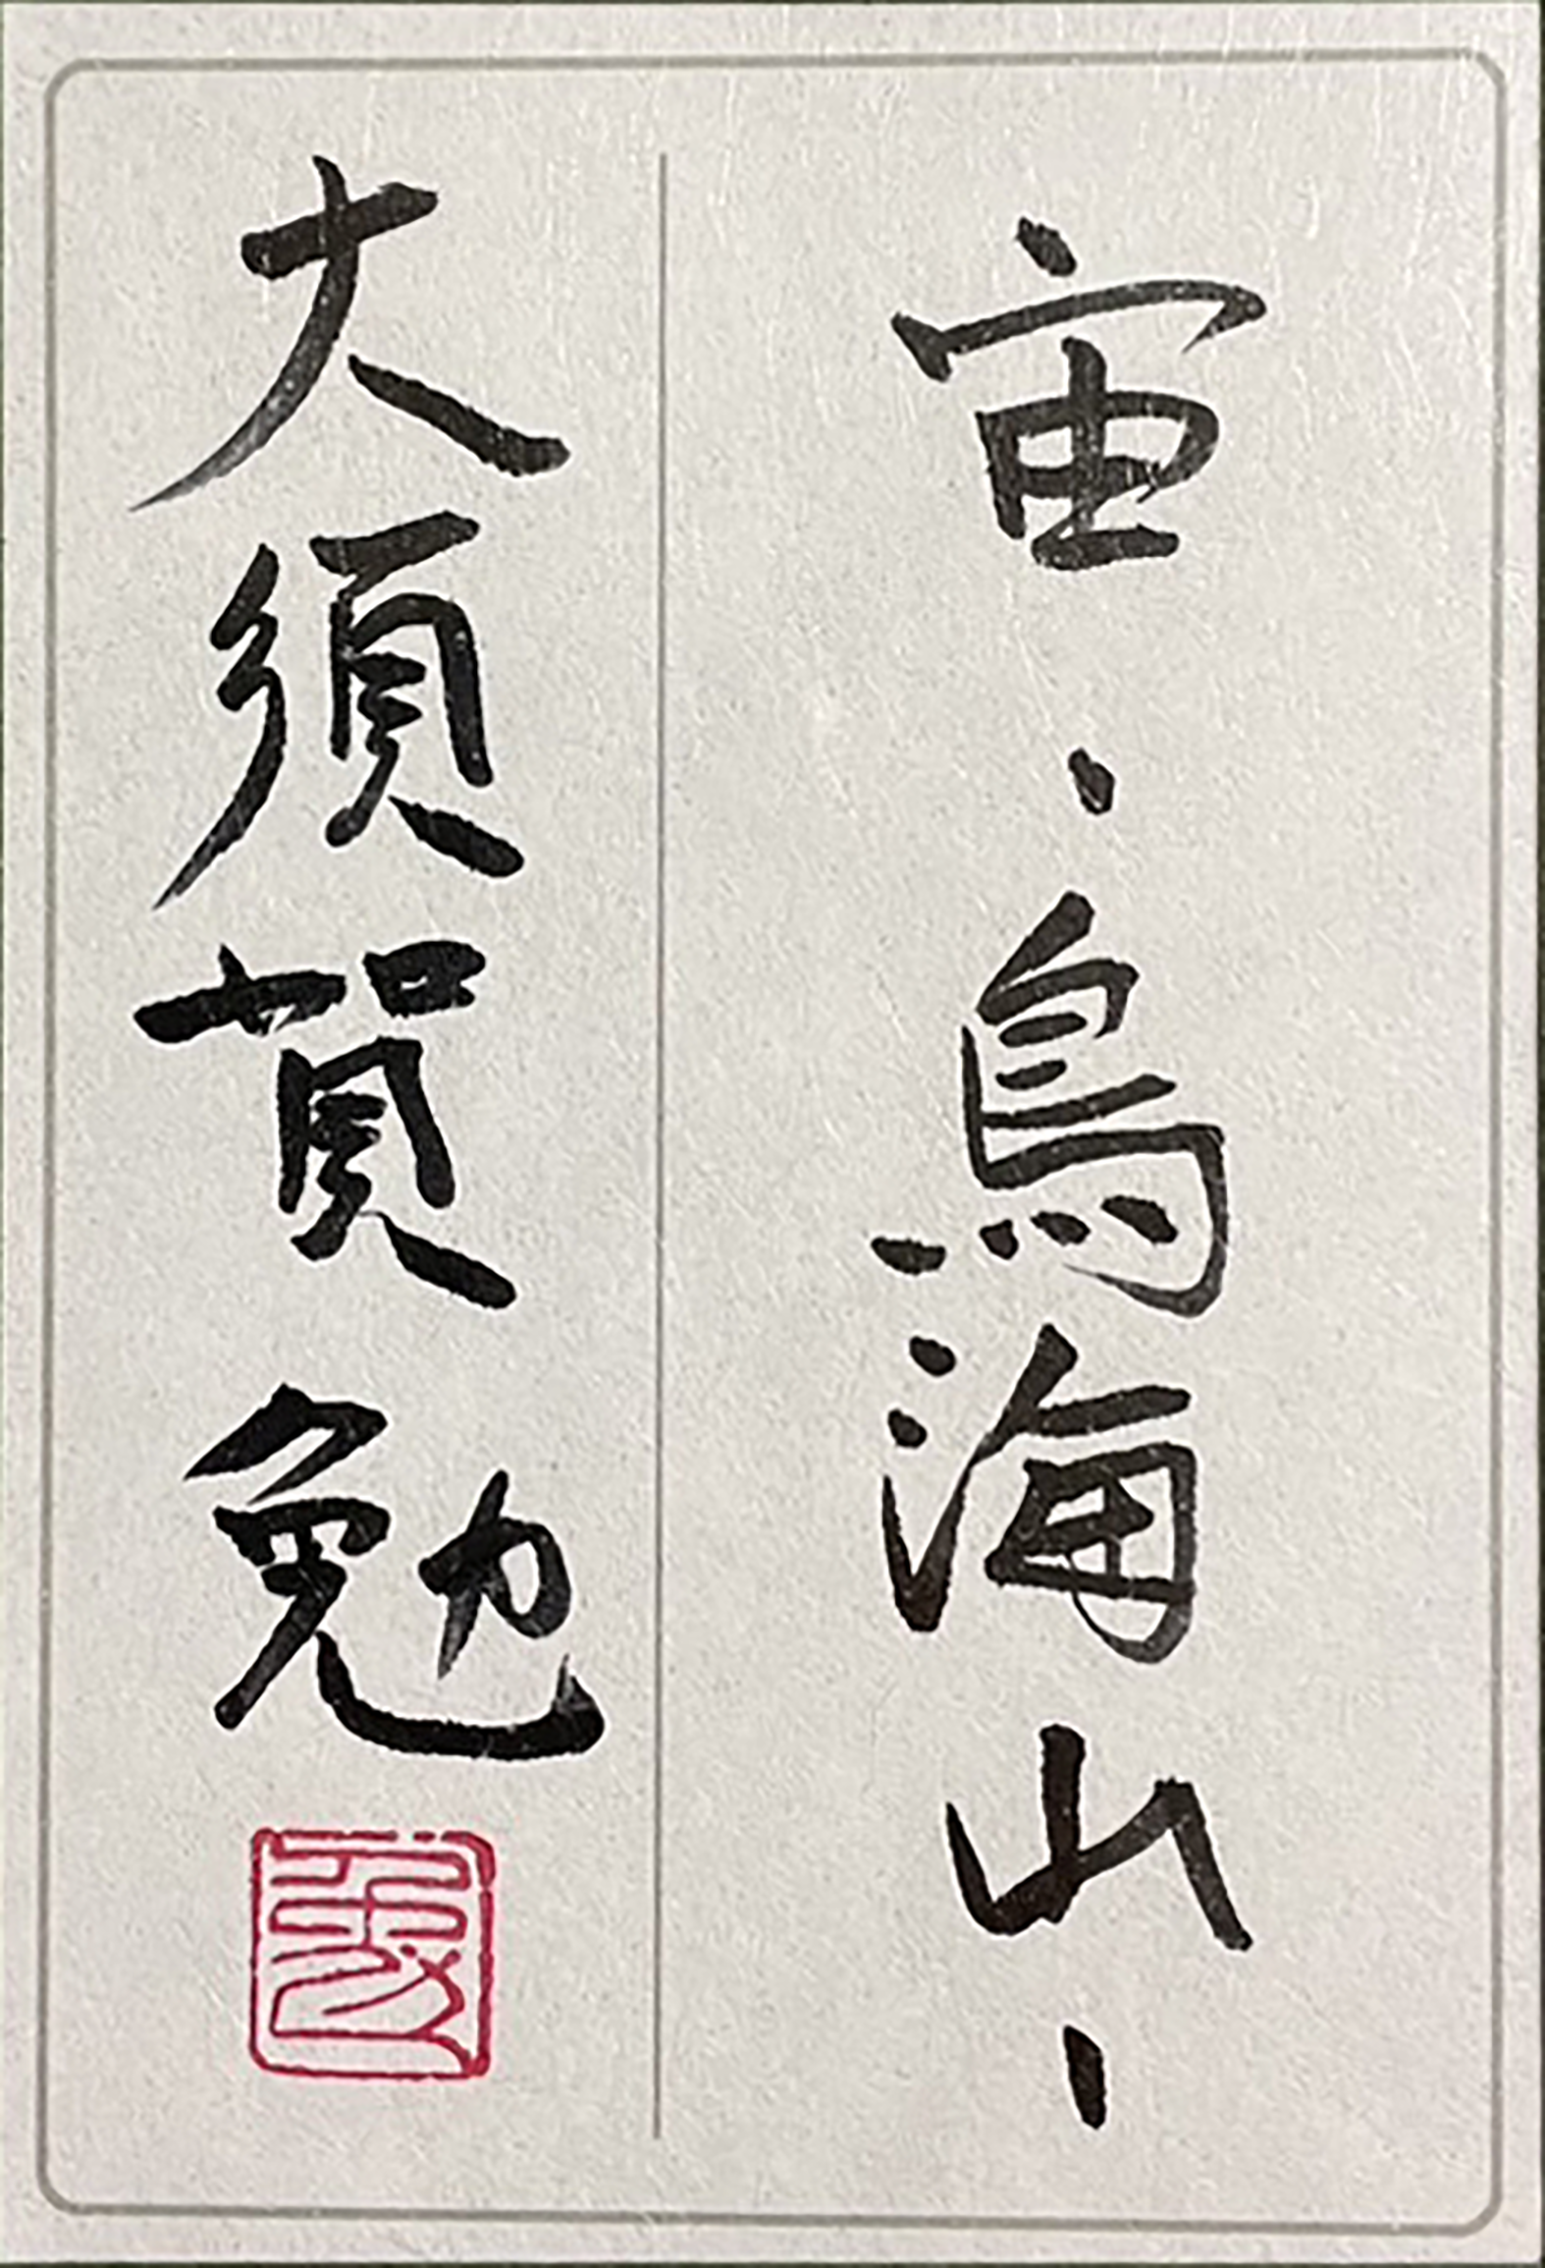 宙・鳥海山・
大須賀 勉